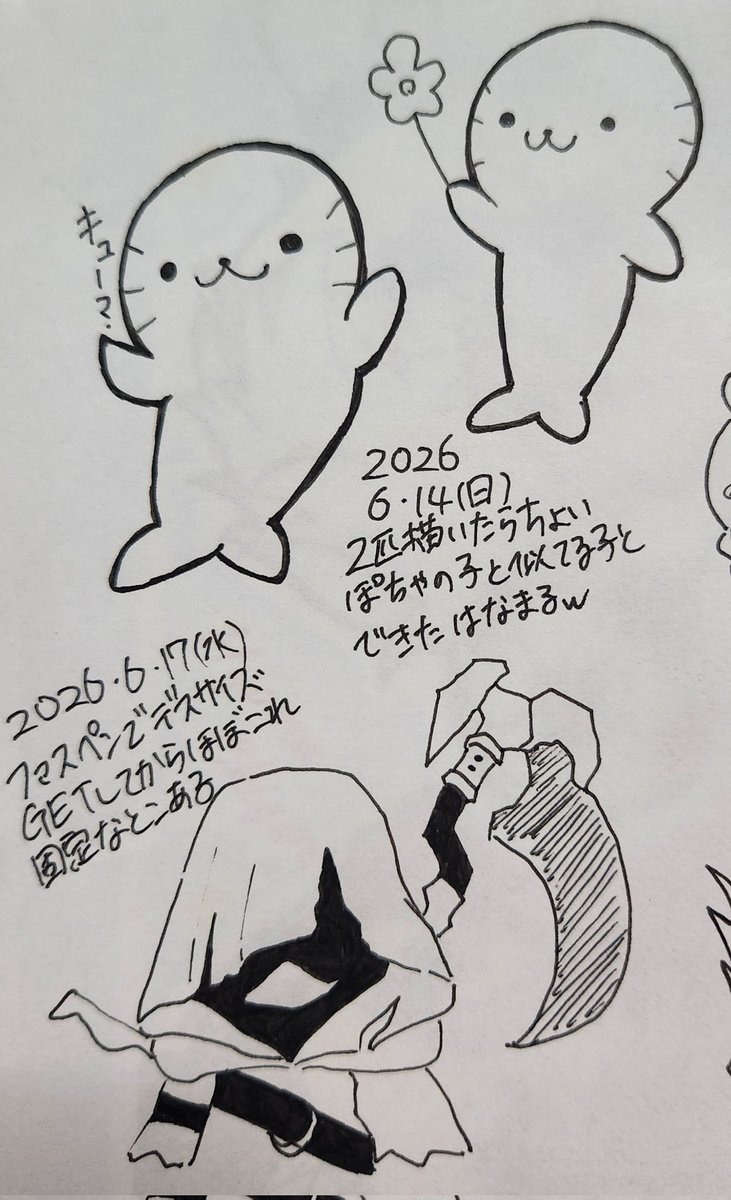 キュー?
2026
6.14(日)
2匹描いたらちょい
ぽちゃの子と似てる子と
できたはなまるw
2026.6.17(水)
ファスペンでデスサイズ
GETしてからほぼこれ
固定なとこある